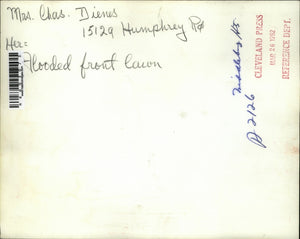 Mrs. Chas. Dienes
15129 Humphrey Rd
Her:
Flooded front lawn
Middleburg Hts
P-2126
CLEVELAND PRESS
MAR 26 1962
REFERENCE DEPT.